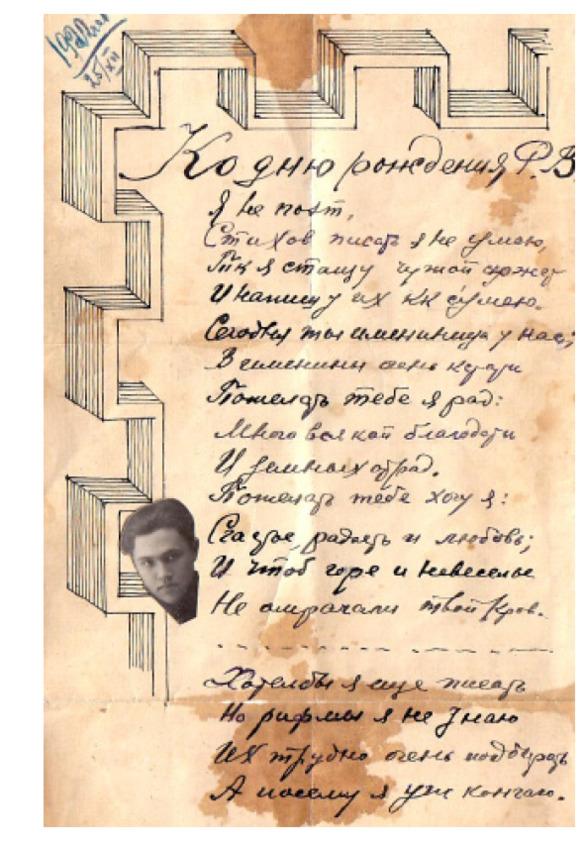 25/XII
Ко дню рождения Р. В
Я не поэт,
Стихов писать я не умею,
Т[а]к я стащу чужой сюжет
И напишу их кк сумею.
Сегодня ты имениница у нас;
В именины день
Пожелать тебе я рад:
Много всякой благодати
И земных отрад.
Пожелать тебе хочу я:
Счастье, радость и любовь;
И чтоб горе и невеселье
Не омрачали твой кров.
Хотелбы я еще писать
Но рифмы я не знаю
Их трудно очень подбирать
А посему я уж кончаю.